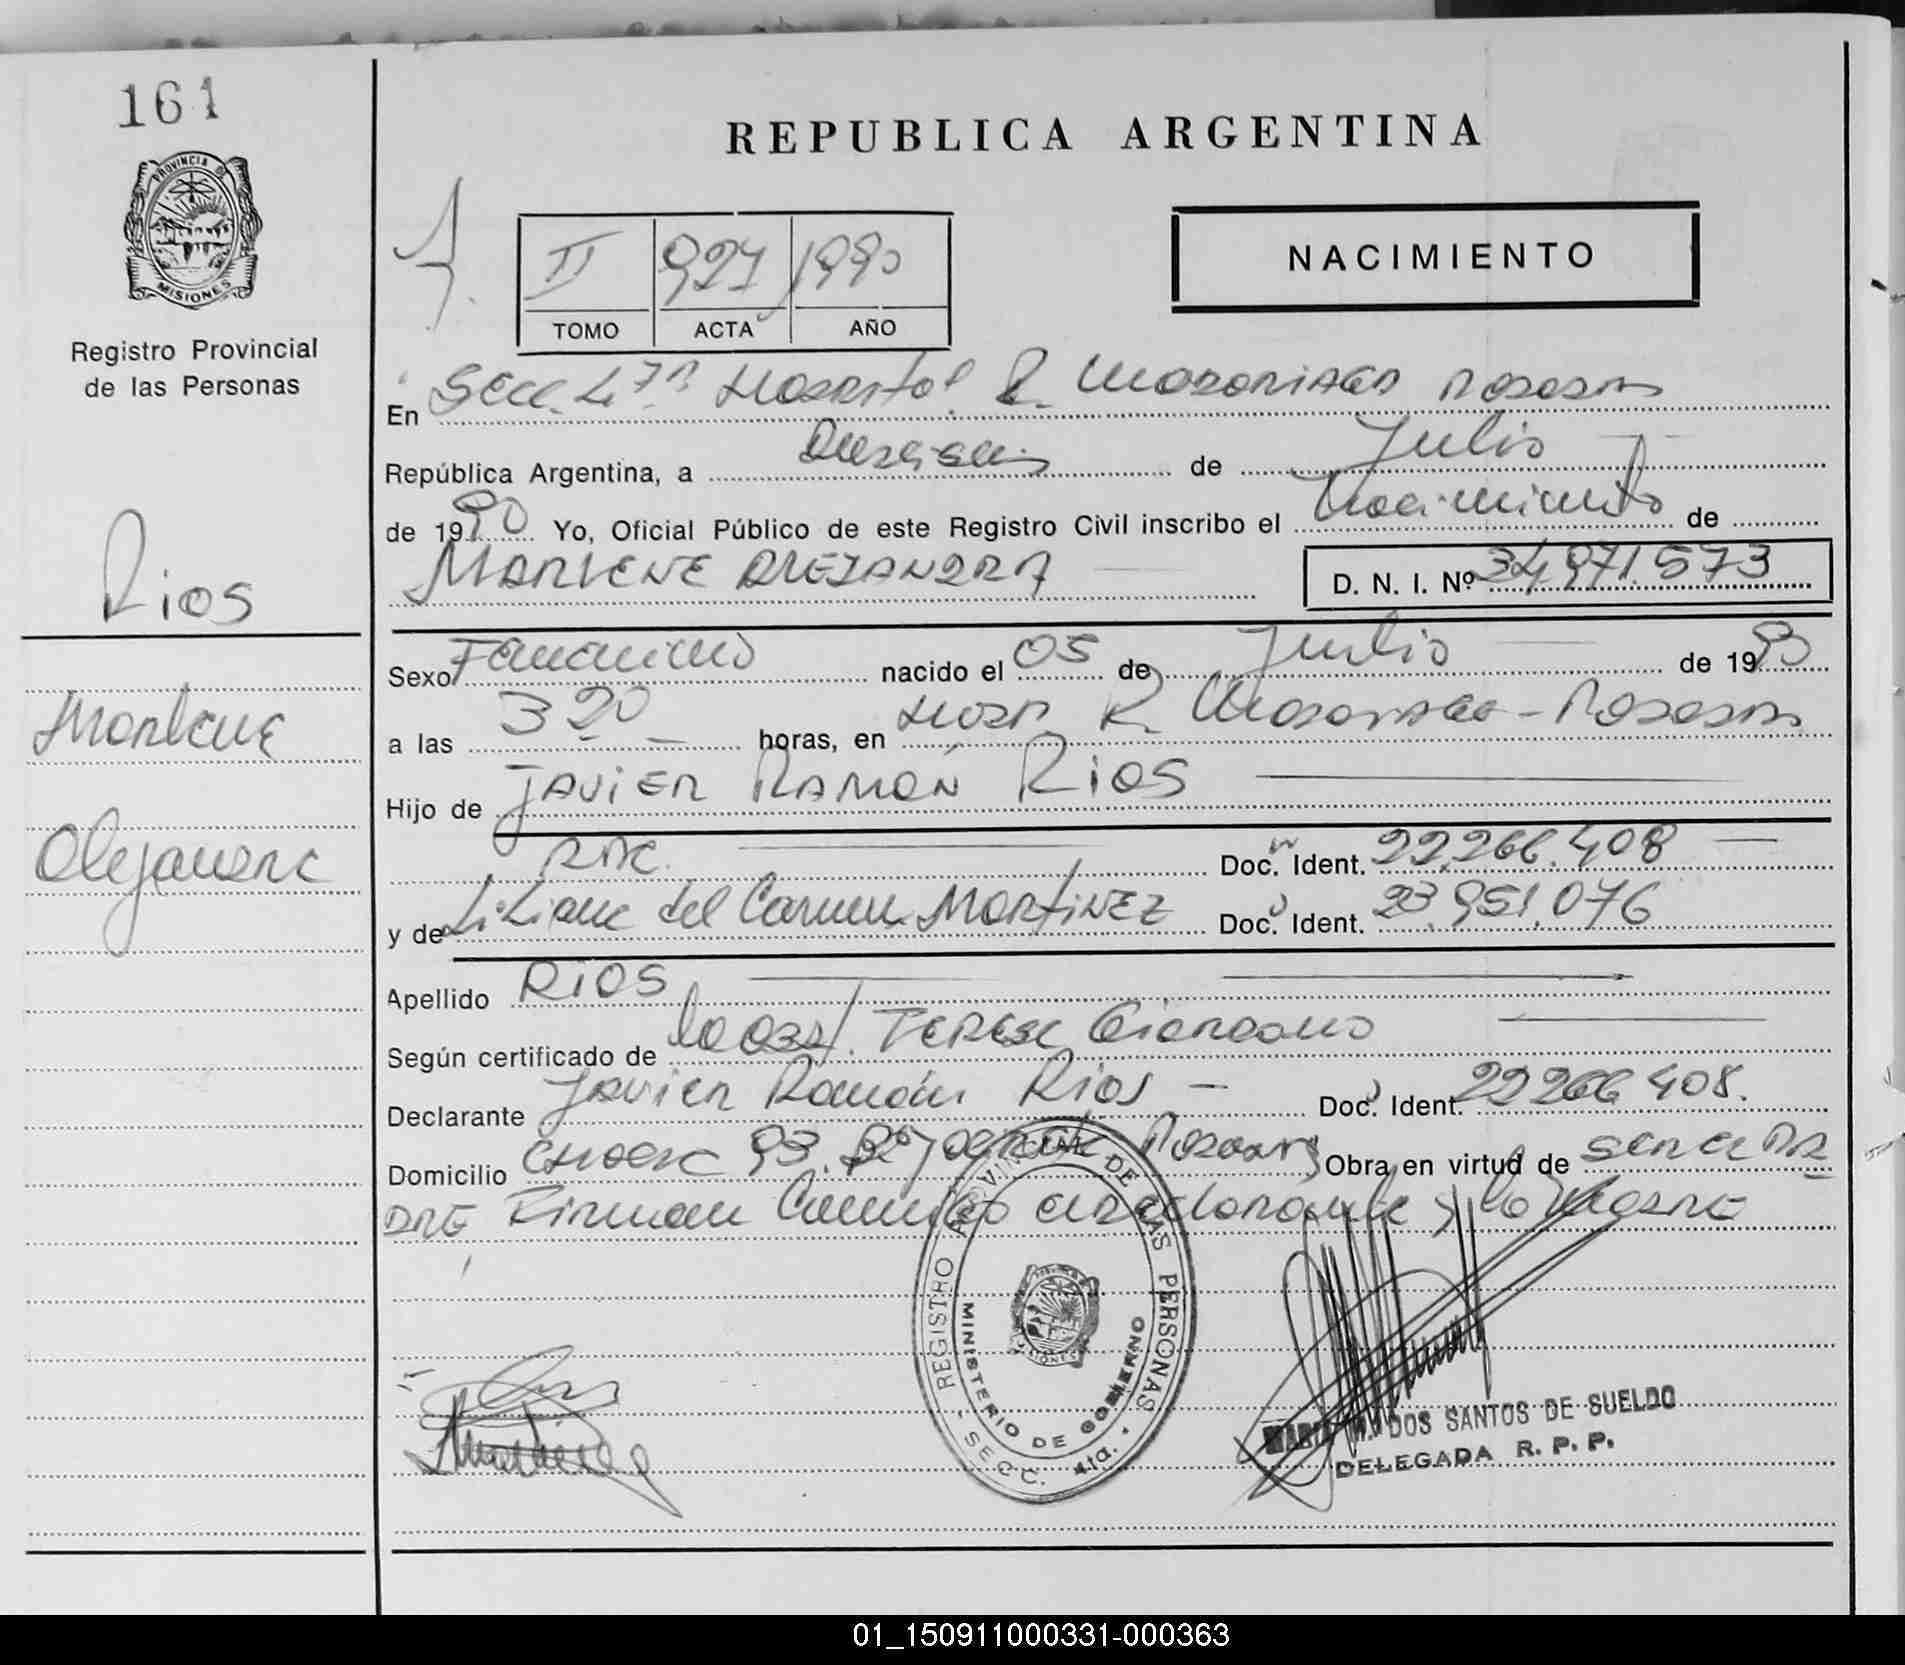 161
PROVINCIA DE
MISIONES
Registro Provincial
de las Personas
Rios
Marlene
Alejandra
REPUBLICA ARGENTINA
II 927 1990
TOMO ACTA AÑO
NACIMIENTO
En Secc. 4ta Hospital R. Madariaga Posadas
República Argentina, a Dieciseis de Julio
de 1990 Yo, Oficial Público de este Registro Civil inscribo el Nacimiento de
MARLENE ALEJANDRA D. N. I. Nº 34.971.573
Sexo Femenino nacido el 05 de Julio de 1990
a las 3 20 horas, en Hosp. R. Madariaga - Posadas
Hijo de JAVIER RAMÓN RIOS
Doc. Ident. 22.266.408
y de Liliana del Carmen MARTINEZ Doc. Ident. 23.951.076
Apellido RIOS
Según certificado de la Obst. TERESA Giordano
Declarante Javier Ramón Rios - Doc. Ident. 22266408.
Domicilio Chacra 93 Posadas Obra en virtud de ser el PA
DRE Firman Conmigo el declarante y la Madre
REGISTRO PROVINCIAL DE LAS PERSONAS
MINISTERIO DE GOBIERNO
MISIONES
- SECC. 4ta. -
M. DOS SANTOS DE SUELDO
DELEGADA R. P. P.
01_150911000331-000363